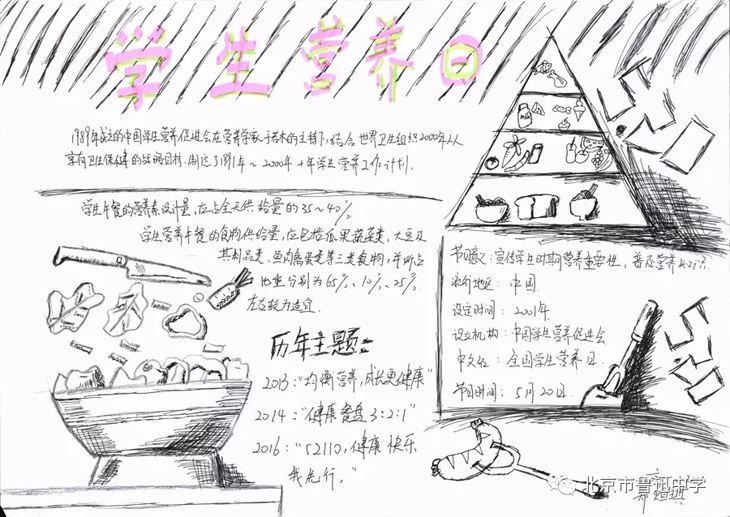 学生营养日
1989年成立的中国学生营养促进会在营养学家于若木的主持下,结合世界卫生组织2000年人人
享有卫生保健的战略目标,制定了1991年~2000年十年学生营养工作计划。
学生午餐的营养素设计量,应占全天供给量的35~40%
学生营养午餐的食物供给量,应包括瓜果蔬菜类、大豆及
其制品类、鱼肉禽蛋类等三类食物,并所占
比重分别为65%、10%、25%
左右较为适宜
历年主题:
2013:"均衡营养,成长更健康"
2014:"健康餐盘3:2:1"
2016:"52110,健康快乐
我先行。"
节日意义:宣传学生时期营养重要性,普及营养知识
流行地区:中国
设定时间:2001年
设立机构:中国学生营养促进会
中文名:全国学生营养日
节日时间:5月20日
北京市鲁迅中学